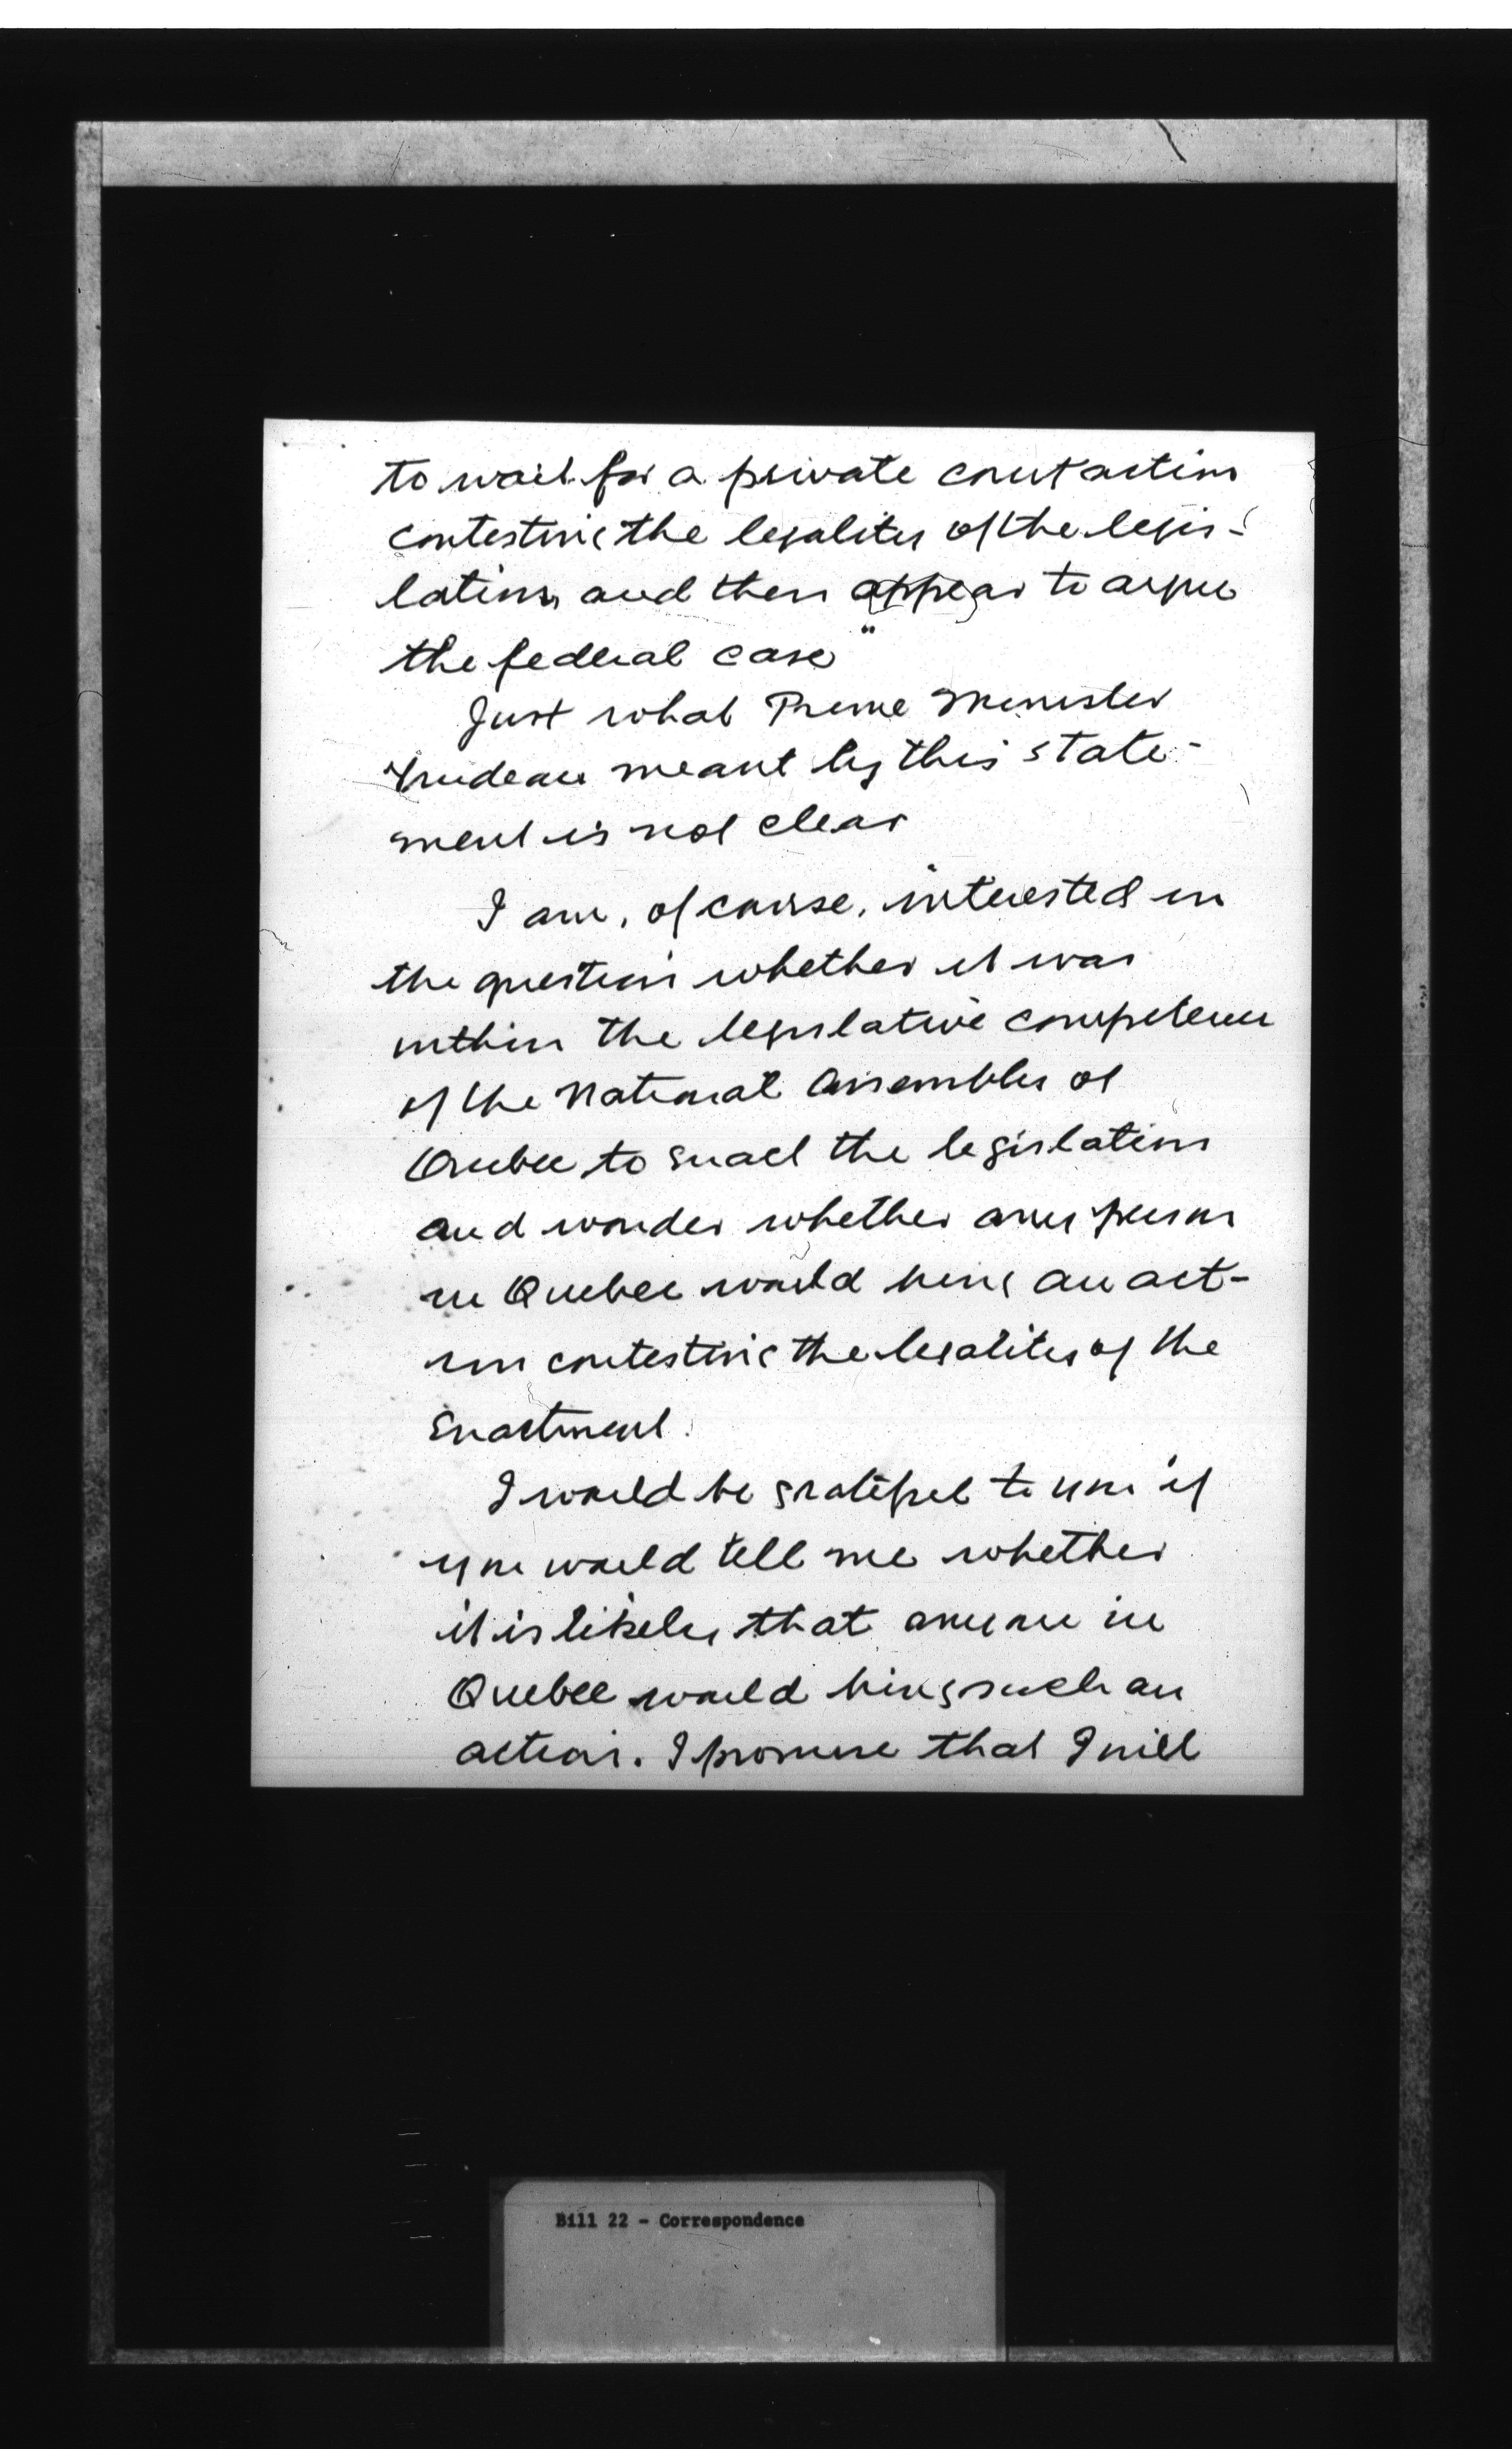 to wait for a private court action
contesting the legality of the legis-
lation, and then appear to argue
the federal case"
Just what Prime Minister
Trudeau meant by this state-
ment is not clear
I am, of course, interested in
the question whether it was
within the legislative competence
of the National Assembly of
Quebec to enact the legislation
and wonder whether any person
in Quebec would bring an act-
ion contesting the legality of the
enactment.
I would be grateful to you if
you would tell me whether
it is likely that anyone in
Quebec would bring such an
action. I promise that I will
Bill 22 - Correspondence